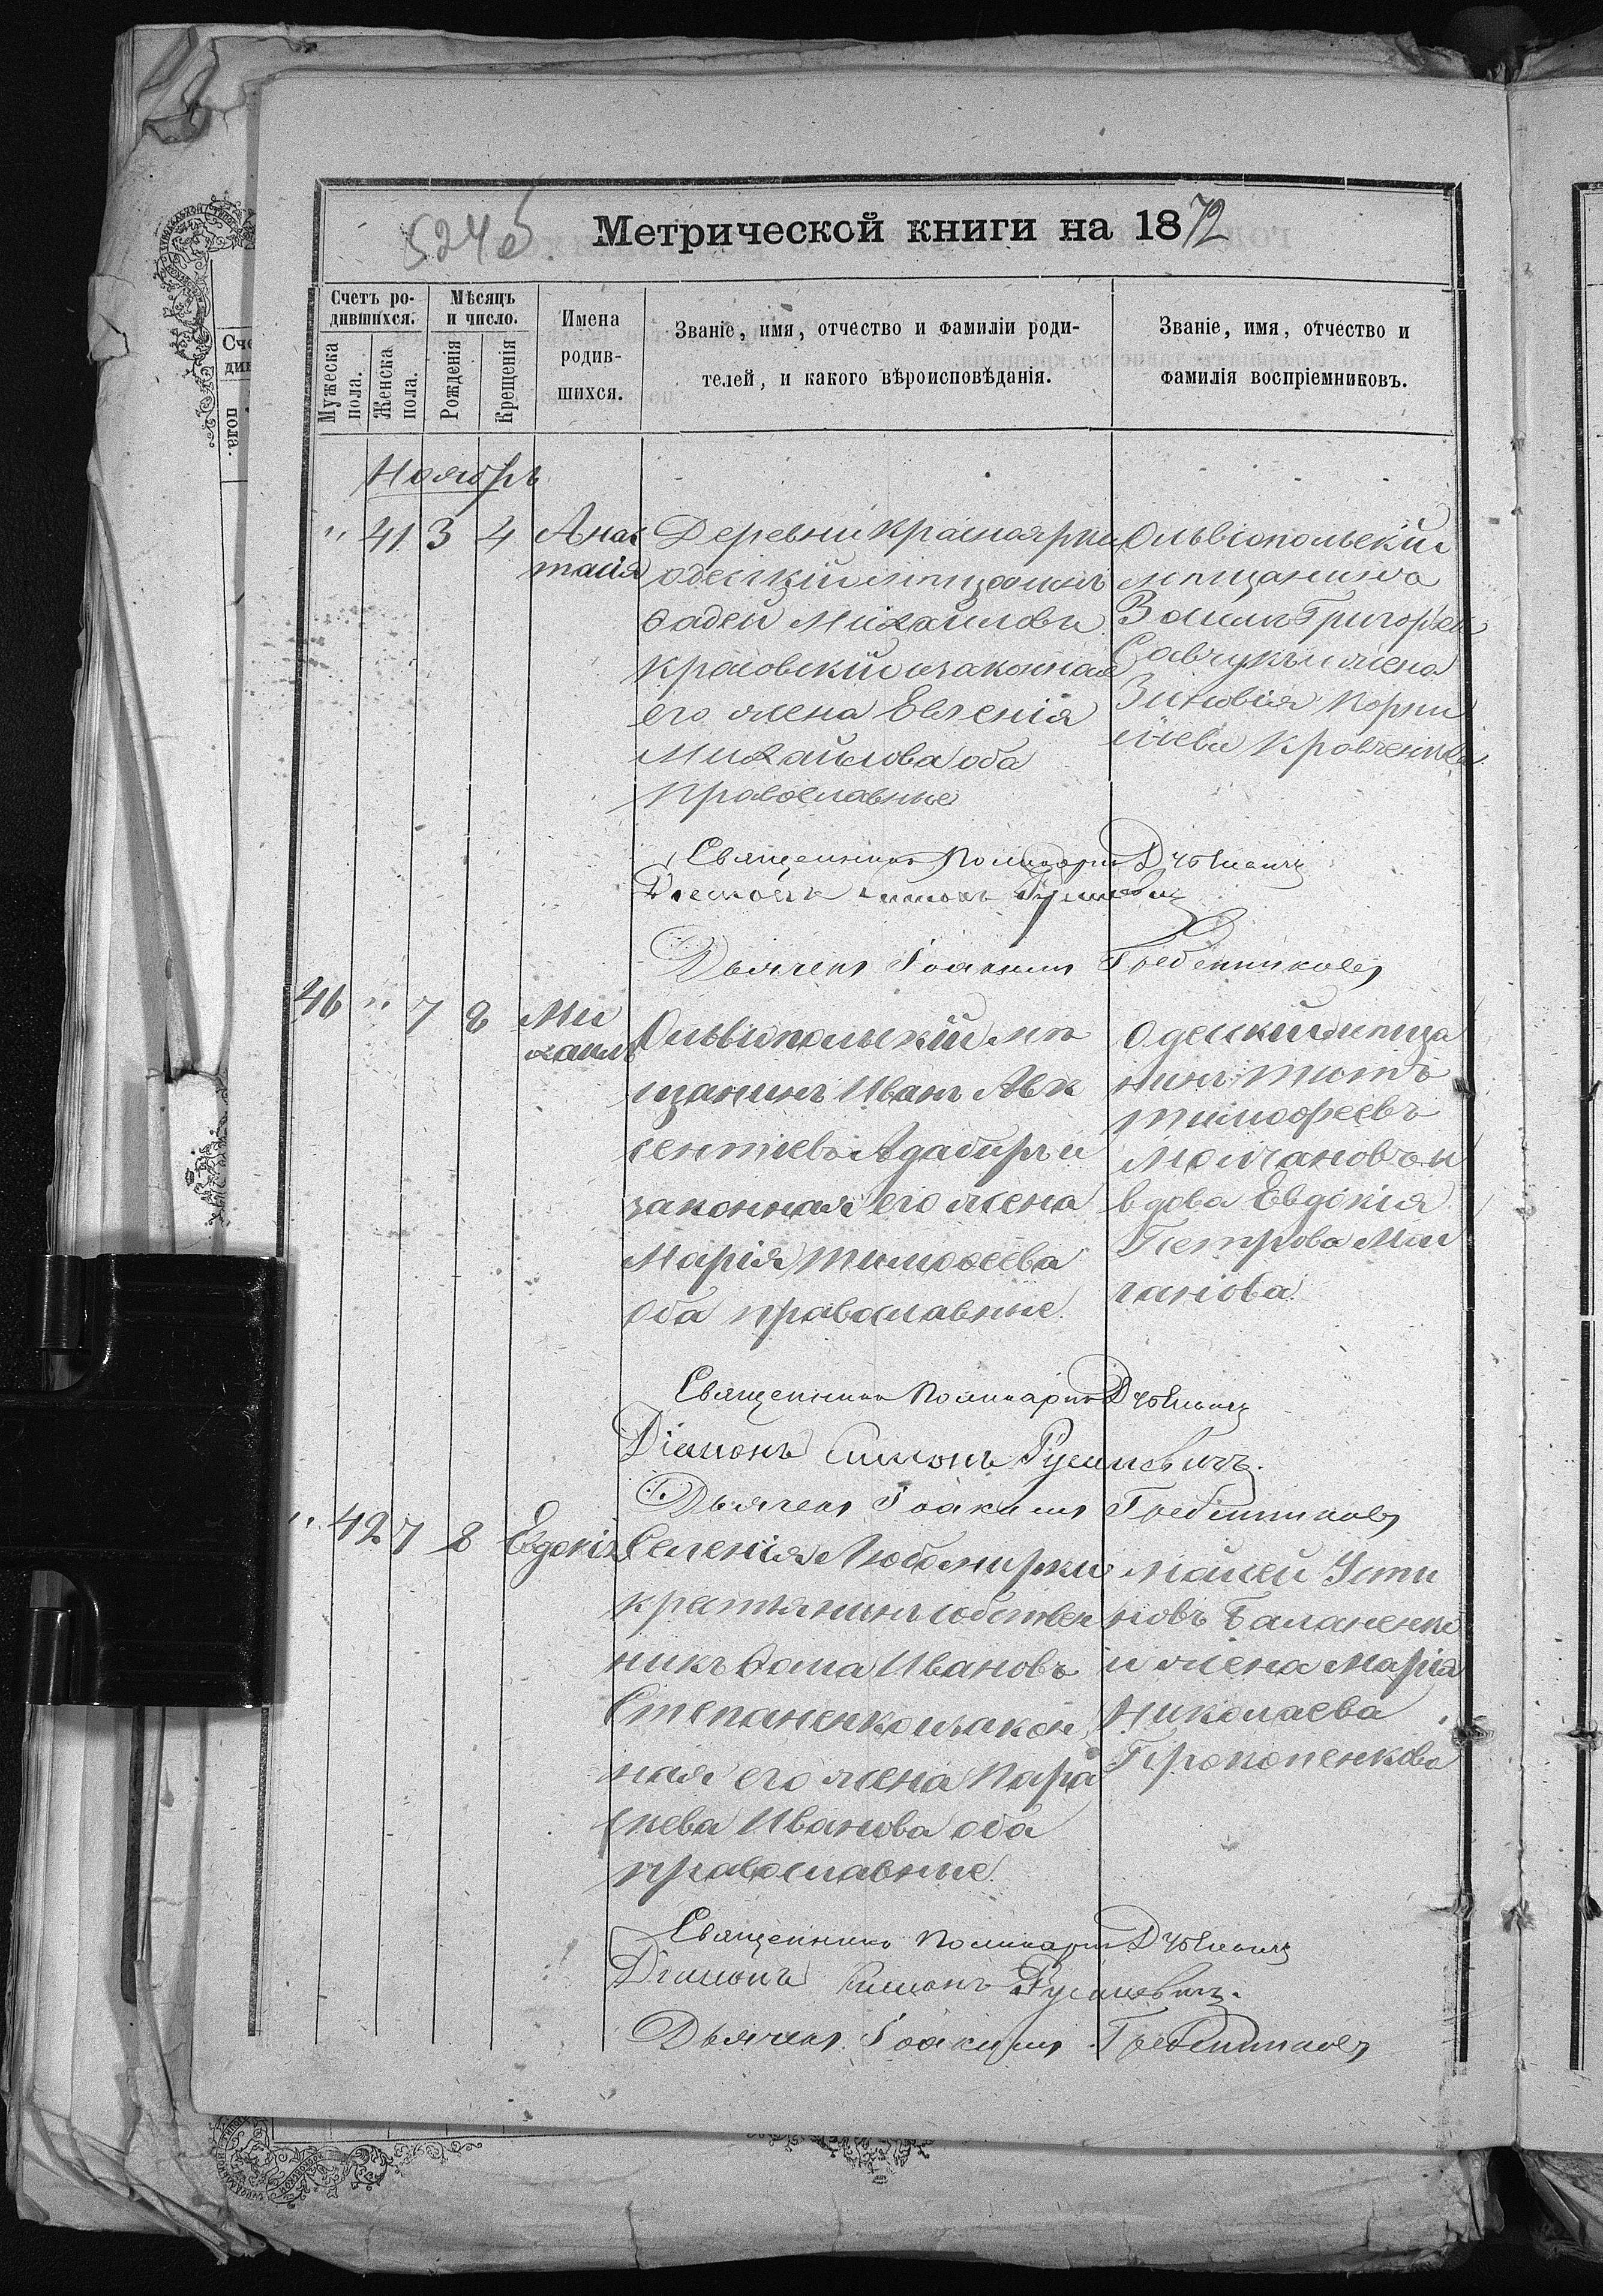 524 об.
Метрической книги на 1872
Счетъ ро-
дившихся.
Мѣсяцъ
и число.
Имена
родив-
шихся.
Званіе, имя, отчество и фамиліи роди-
телей, и какого вѣроисповѣданія.
Званіе, имя, отчество и
фамилія воспріемниковъ.
Мужеска
пола.
Женска
пола.
Рожденія
Крещенія
Ноябрь
" 41 3 4
Анас
тасія
Деревни Краснаярка
одесскій мѣщанинъ
Фадей Михайловъ
Красовскій и законная
его жена Евгенія
Михайлова оба
православные
Ольвіопольскій
мѣщанинъ
Григорьев
Савчукъ и жена
Зиновія Корни
ліева Кравченкова
Священникъ Поликарпъ
Діаконъ Симонъ
Дьячекъ Іоакимъ Гребенниковъ
46 " 7 8
Ми
хаилъ
Ольвіопольскій мѣ
щанинъ Иванъ Авк
сентіевъ Адабиръ и
законная его жена
Марія Тимофеева
оба православные
Одесскій мѣща
нинъ Титъ
Тимофеевъ
Молчановъ и
вдова Евдокія
Петрова Мол
чанова
Священникъ Поликарпъ
Діаконъ Симонъ Русиневичъ.
Дьячекъ Іоакимъ Гребенниковъ
" 42 7 8
Евдокія
Селенія Любомирки
крестьянинъ собствен
никъ Фома Ивановъ
Степаненко и закон
ная его жена Пара
скева Иванова оба
православные
Мойсей Усти
новъ Баланенко
и жена Марія
Николаева
Прокопенкова
Священникъ Поликарпъ
Діаконъ Симонъ Русиневичъ.
Дьячекъ Іоакимъ Гребенниковъ